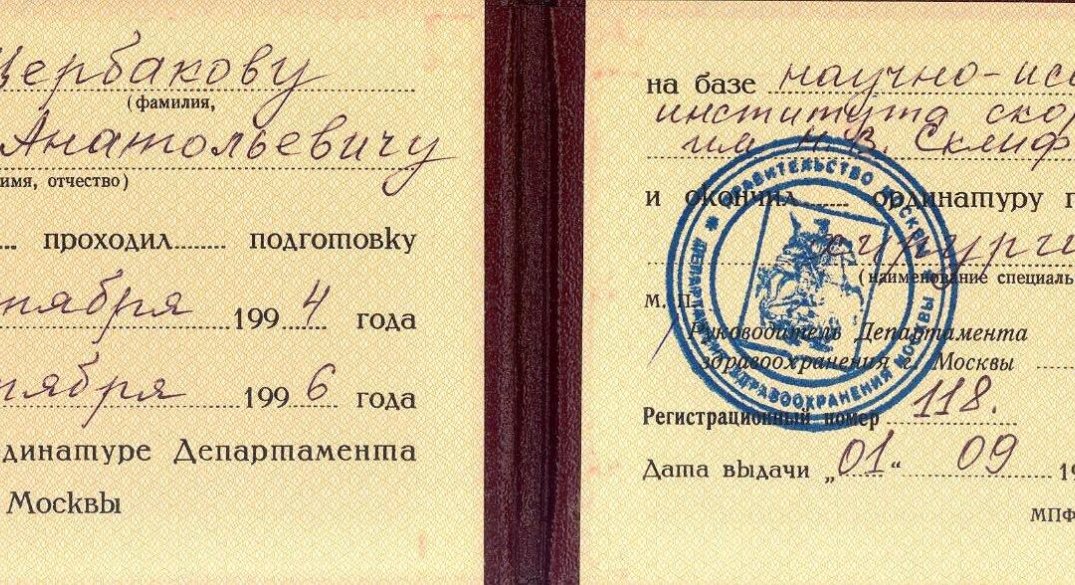 Щербакову
(фамилия,
Анатольевичу
имя, отчество)
проходил подготовку
тября 1994 года
тября 1996 года
динатуре Департамента
Москвы
на базе научно-исс
института скор
им. Н. В. Склиф
и окончил ординатуру п
хирурги
(наименование специаль
М. П.
Руководитель Департамента
здравоохранения г. Москвы
Регистрационный номер 118.
Дата выдачи „01“ 09 19
МПФ
ПРАВИТЕЛЬСТВО МОСКВЫ
ДЕПАРТАМЕНТ ЗДРАВООХРАНЕНИЯ МОСКВЫ